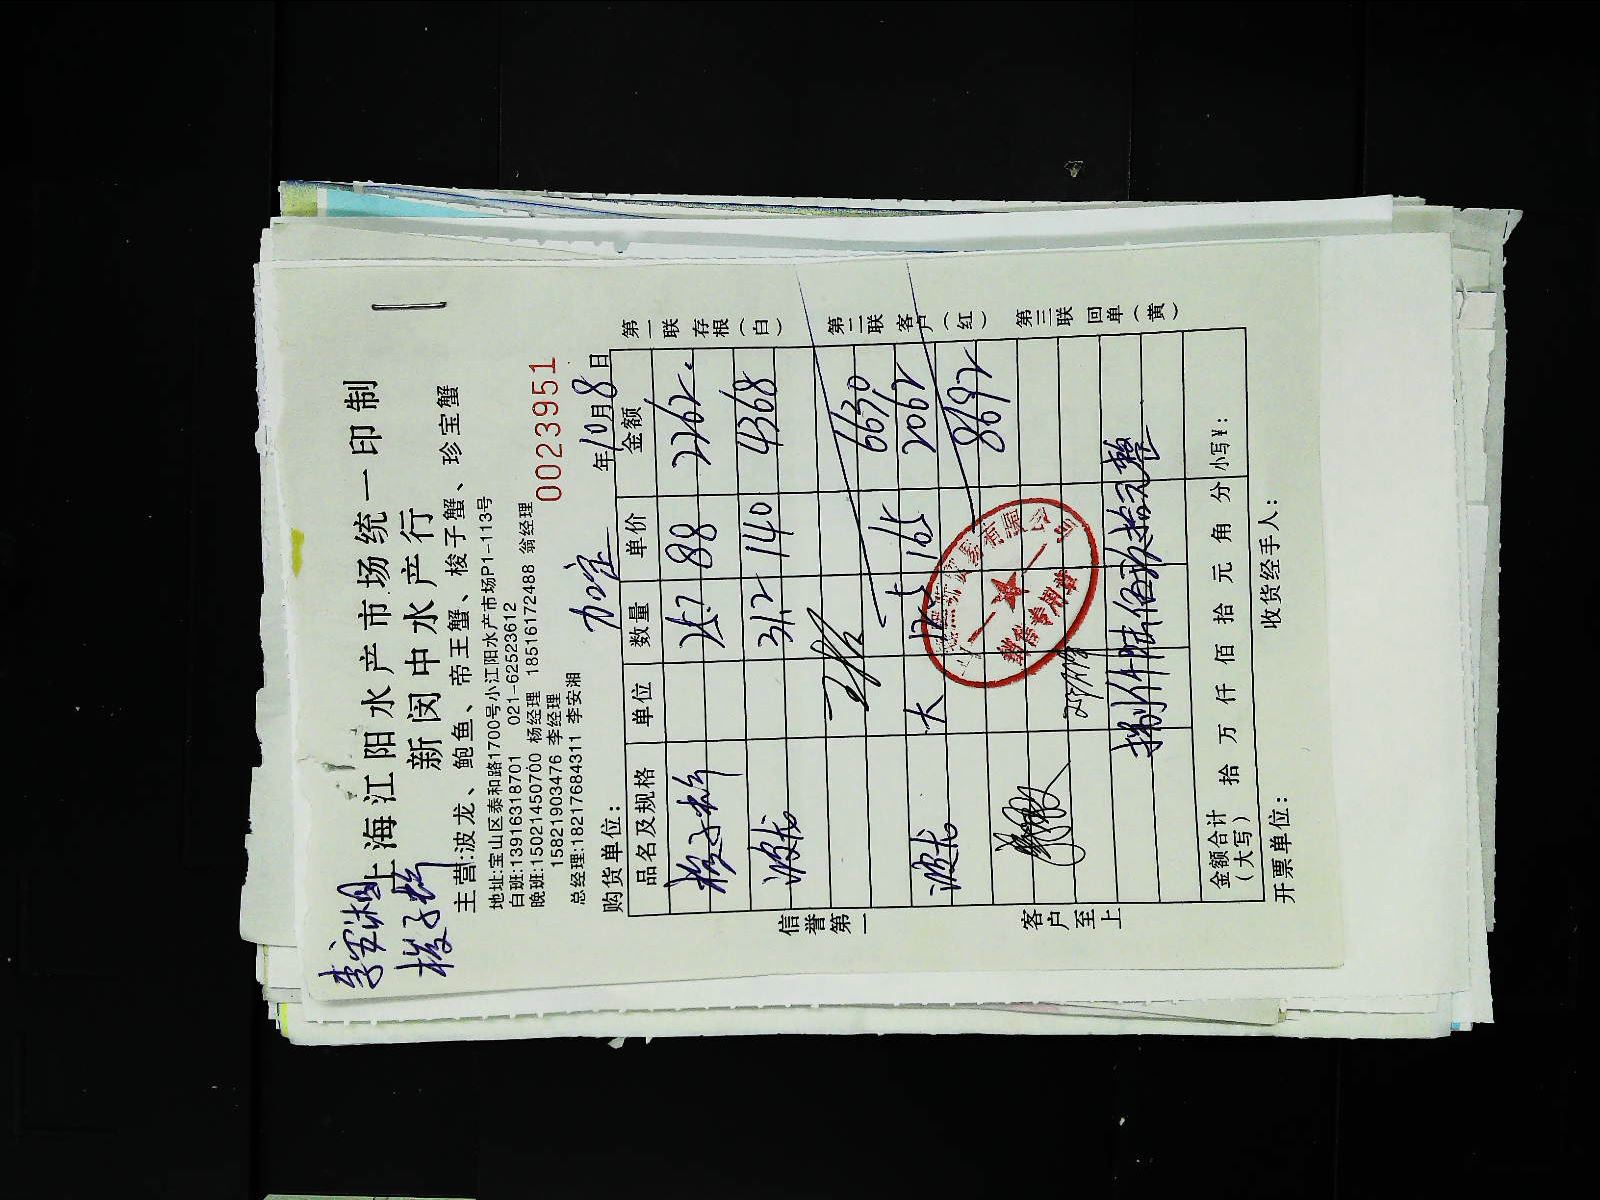 李安湘
梭子蟹
上海江阳水产市场统一印制
新闵中水产行
主营:波龙、鲍鱼、帝王蟹、梭子蟹、珍宝蟹
地址:宝山区泰和路1700号小江阳水产市场P1-113号
白班:13916318701 021-62523612
晚班:15021450700 杨经理 18516172488 翁经理
15821903476 李经理
总经理:18217684311 李安湘
0023951
购货单位: 年10月8日
品名及规格 单位 数量 单价 金额
梭子蟹 25.7 88 2262.
波龙 31.2 140 4368
6630
波龙 大 12.5 165 2062
8692
捌仟陆佰玖拾元整
金额合计(大写) 拾 万 仟 佰 拾 元 角 分 小写¥:
开票单位: 收货经手人:
信誉第一
客户至上
第一联 存根(白)
第二联 客户(红)
第三联 回单(黄)